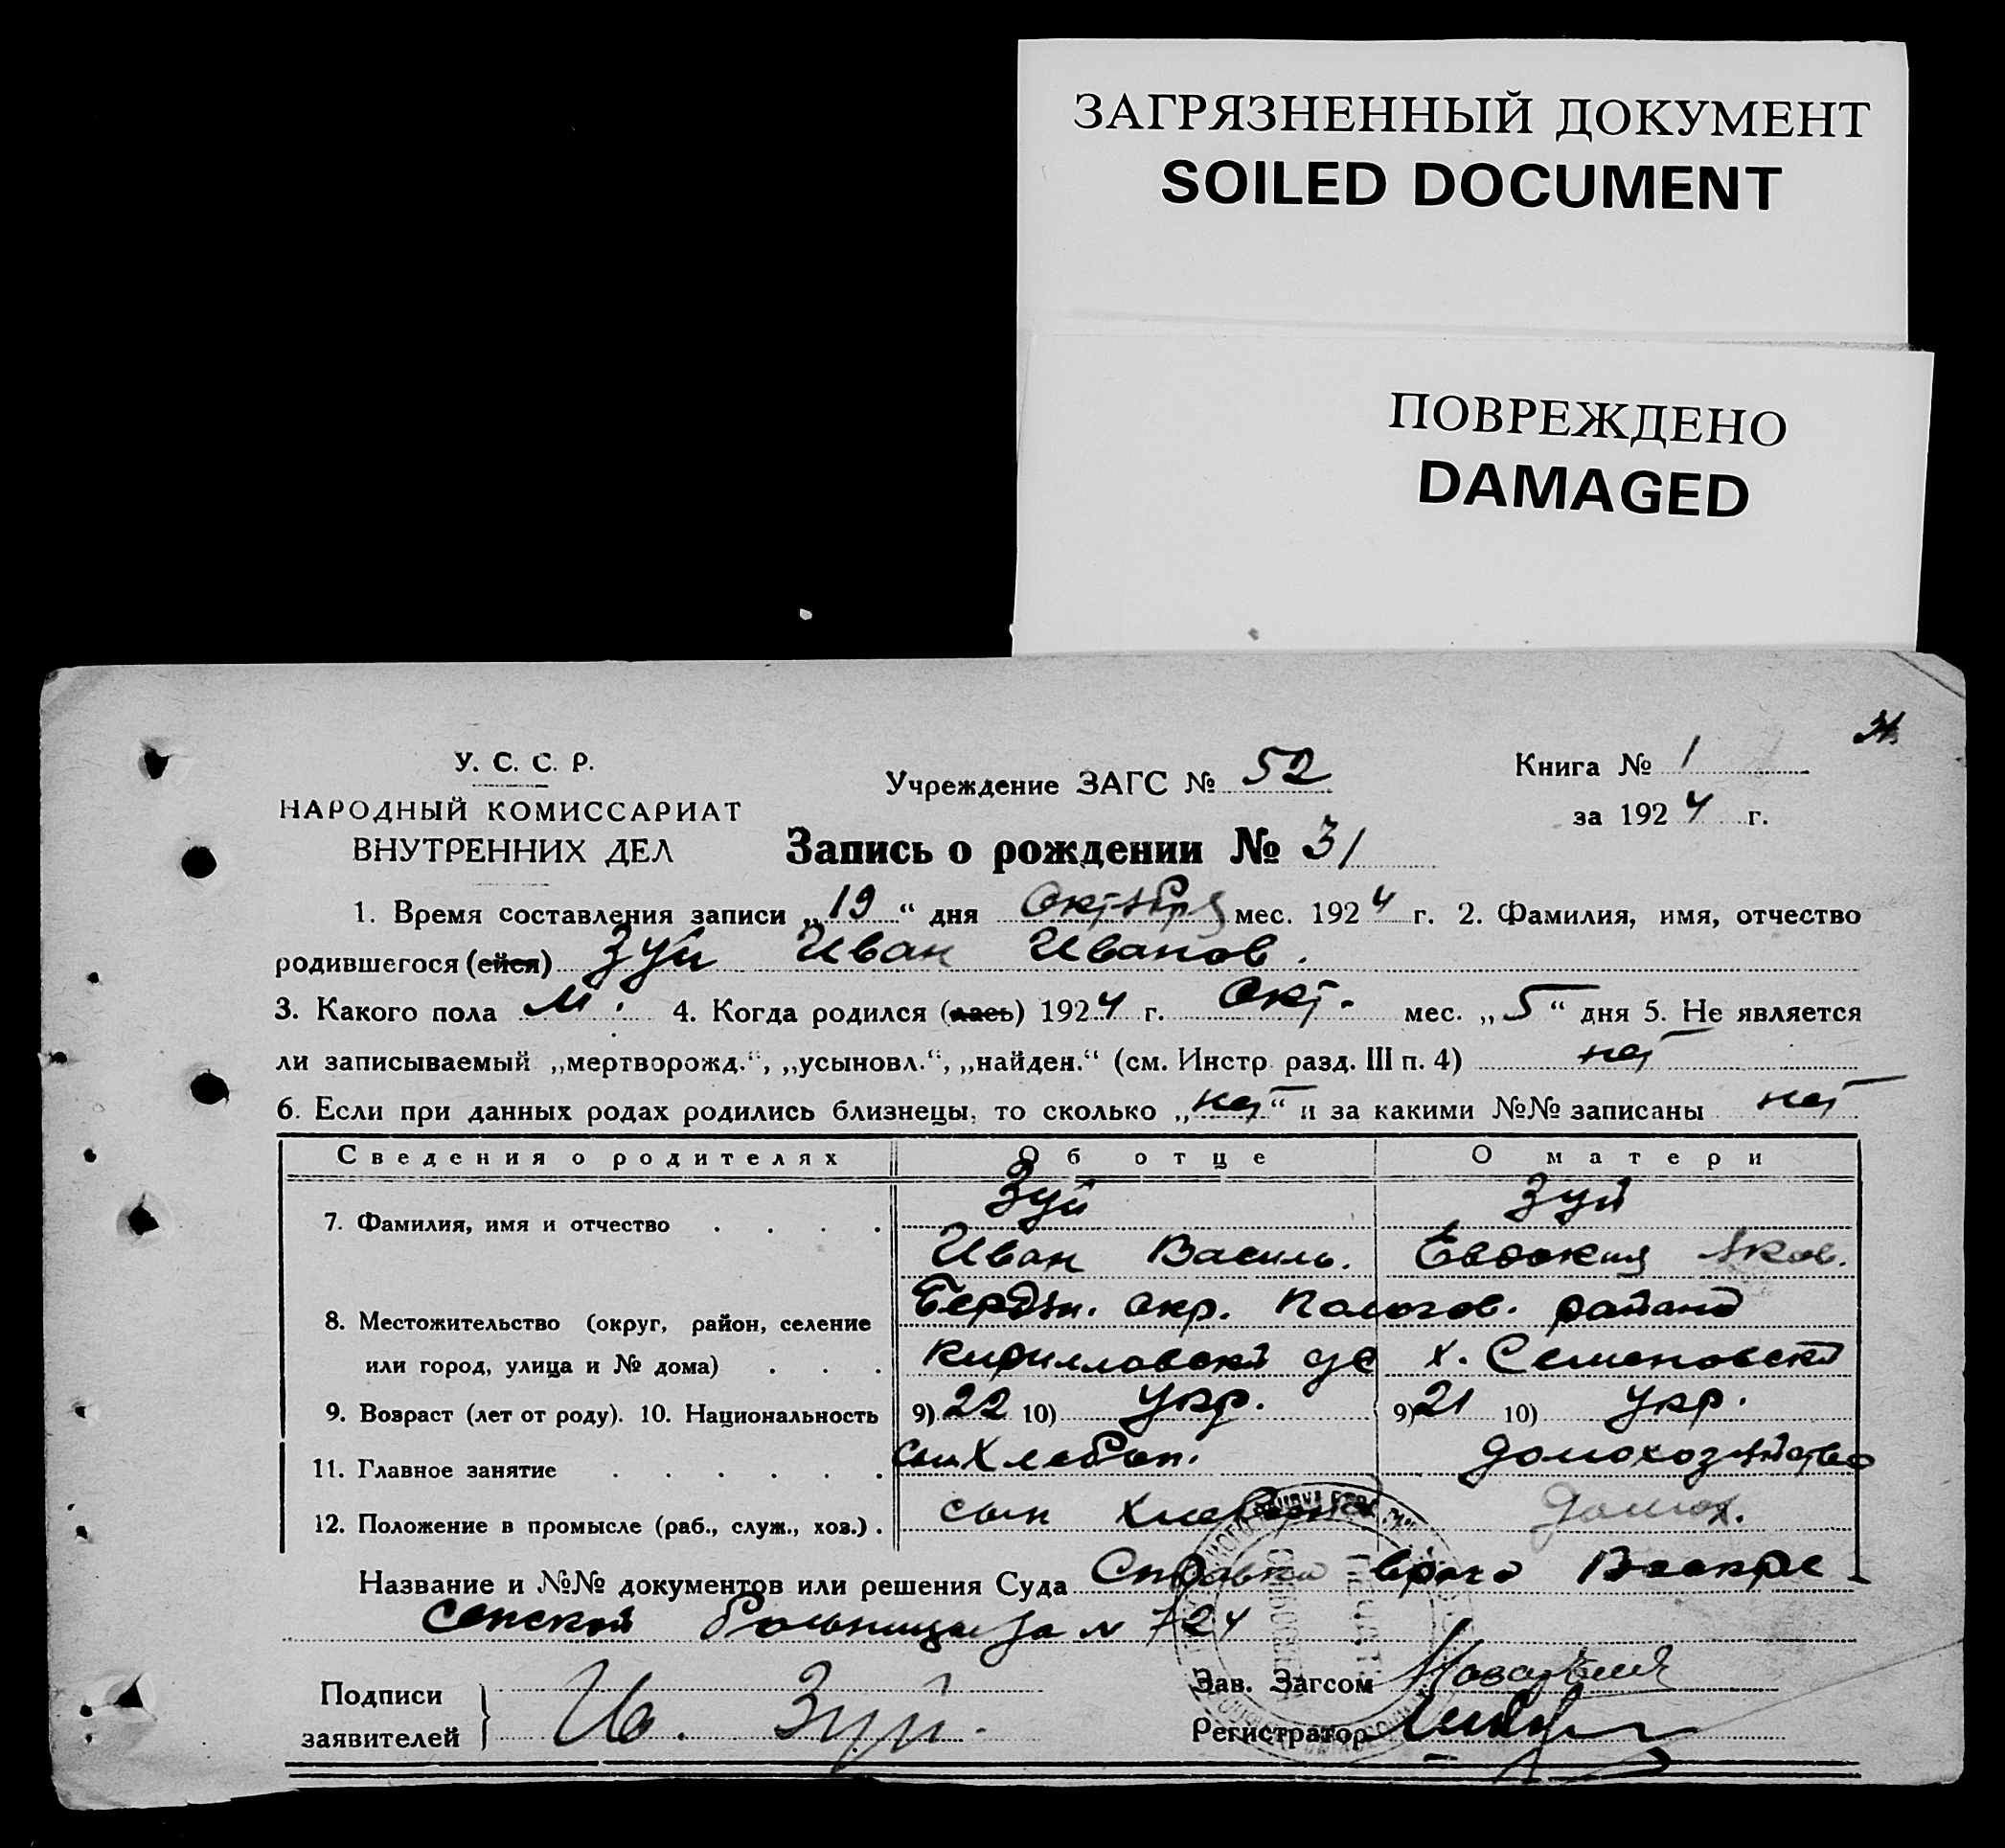 ЗАГРЯЗНЕННЫЙ ДОКУМЕНТ
SOILED DOCUMENT
ПОВРЕЖДЕНО
DAMAGED
У. С. С. Р.
НАРОДНЫЙ КОМИССАРИАТ
ВНУТРЕННИХ ДЕЛ
Учреждение ЗАГС № 52
Книга № 1
за 1924 г.
Запись о рождении № 31
1. Время составления записи „19“ дня Октября мес. 1924 г. 2. Фамилия, имя, отчество
родившегося (ейся) Зуй Иван Иванов.
3. Какого пола М. 4. Когда родился (лась) 1924 г. Окт. мес. „5“ дня 5. Не является
ли записываемый „мертворожд.“, „усыновл.“, „найден.“ (см. Инстр. разд. III п. 4) нет
6. Если при данных родах родились близнецы, то сколько „нет“ и за какими №№ записаны нет
Сведения о родителях Об отце О матери
7. Фамилия, имя и отчество . . . . Зуй Зуй
Иван Василь. Евдокия Яков.
8. Местожительство (округ, район, селение Бердян. окр. Пологов. района
или город, улица и № дома) . . . Кирилловский х. Семеновский
9. Возраст (лет от роду). 10. Национальность 9) 22 10) Укр. 9) 21 10) Укр.
11. Главное занятие . . . . . . сын Хлебоп. домохозяйство
12. Положение в промысле (раб., служ., хоз.) . сын домох.
Название и №№ документов или решения Суда Справка врача Воскре
сенской больницы за № 724
Подписи
заявителей } Ив. Зуй.
Зав. Загсом
Регистратор